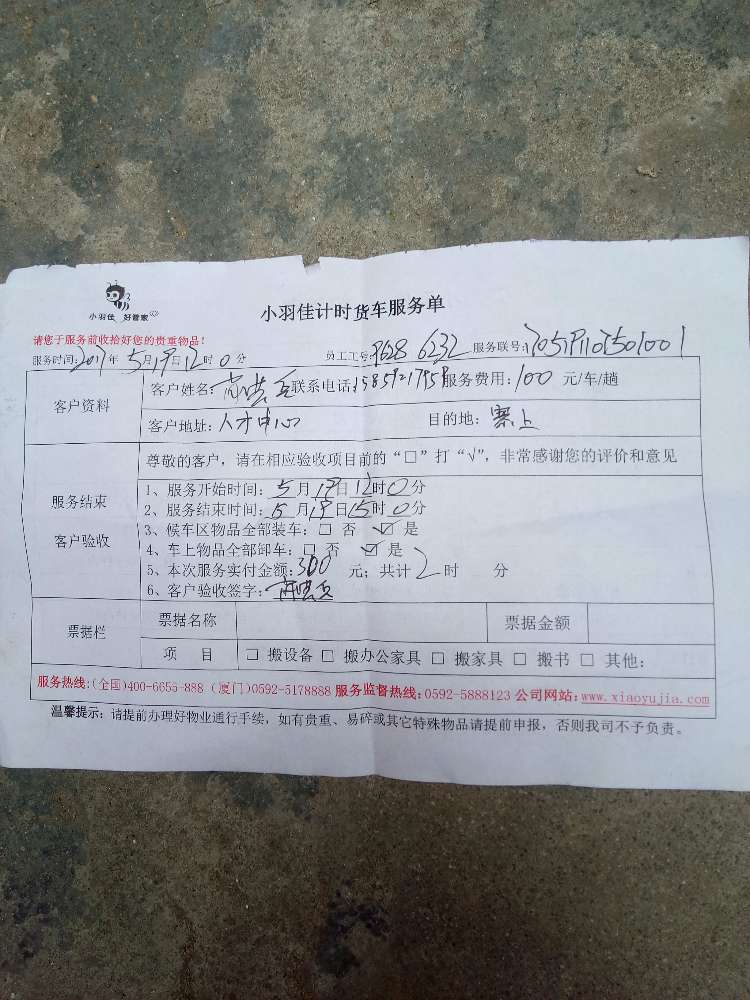 小羽佳 好管家
小羽佳计时货车服务单
请您于服务前收拾好您的贵重物品!
服务时间:2017年 5月19日12时0分 员工工号: 6232 服务联号:
客户资料
客户姓名: 联系电话: 服务费用:100 元/车/趟
客户地址:人才中心 目的地:寨上
服务结束
客户验收
尊敬的客户,请在相应验收项目前的“□”打“√”,非常感谢您的评价和意见
1、服务开始时间:5月19日12时0分
2、服务结束时间:5月19日15时0分
3、候车区物品全部装车:□ 否 ☑ 是
4、车上物品全部卸车:□ 否 ☑ 是
5、本次服务实付金额:300 元;共计2时 分
6、客户验收签字:
票据栏
票据名称 票据金额
项 目 □ 搬设备 □ 搬办公家具 □ 搬家具 □ 搬书 □ 其他:
服务热线:(全国)400-6655-888 (厦门)0592-5178888 服务监督热线:0592-5888123 公司网站:www.xiaoyujia.com
温馨提示:请提前办理好物业通行手续,如有贵重、易碎或其它特殊物品请提前申报,否则我司不予负责。